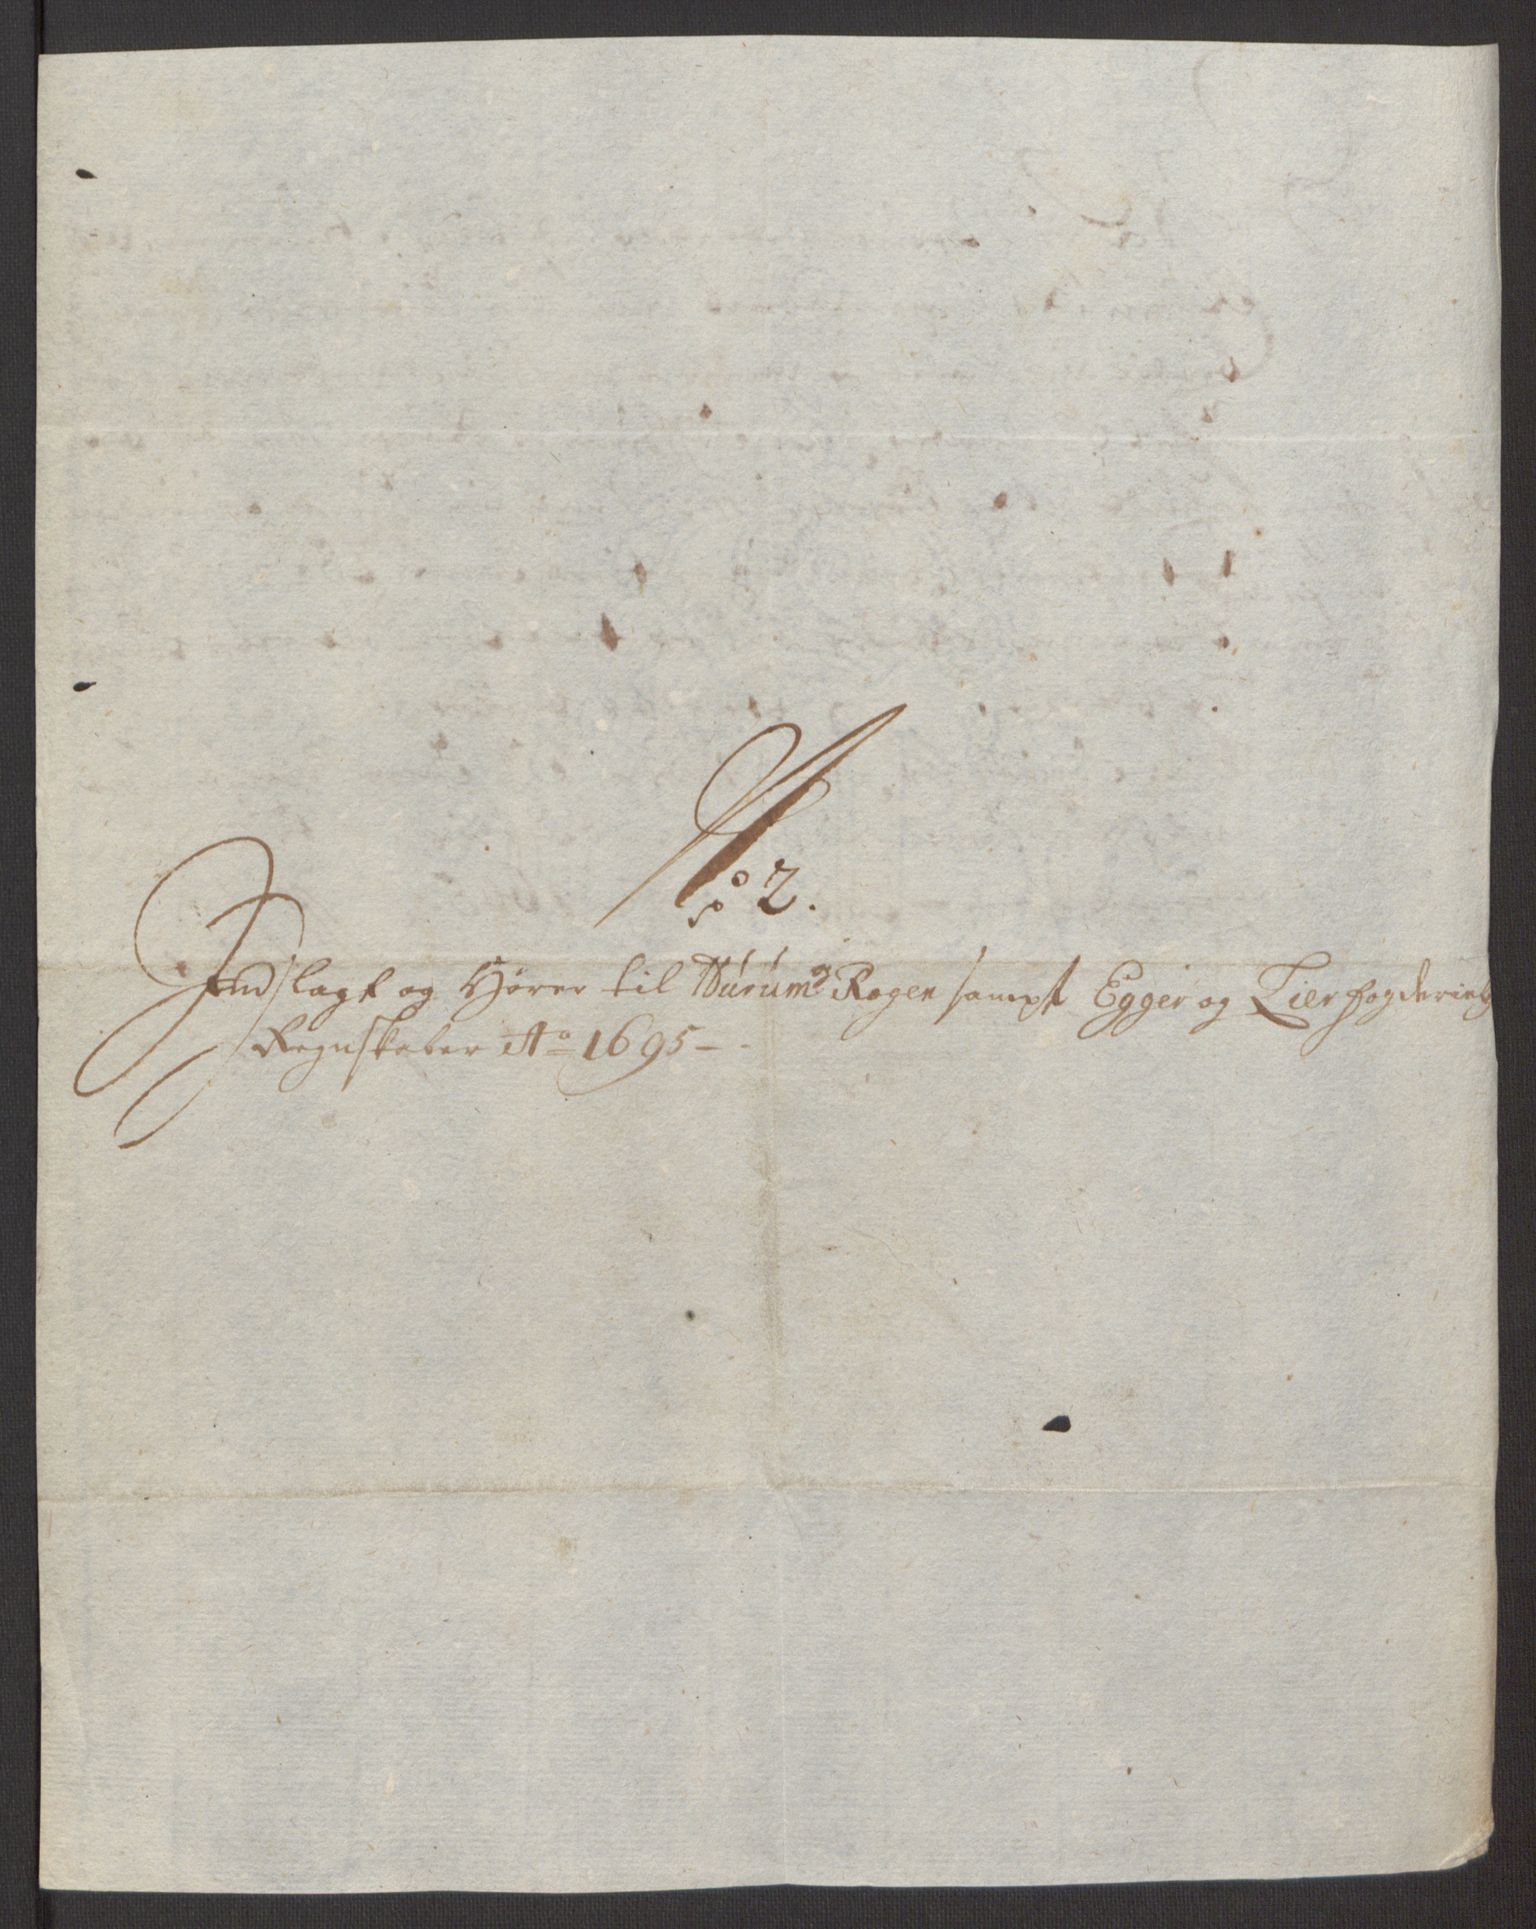 No 2.
Indslagt og Hører til Burum og Rogen sampt Egger og Lier fogderiets
Regnskaber Ao 1695 –